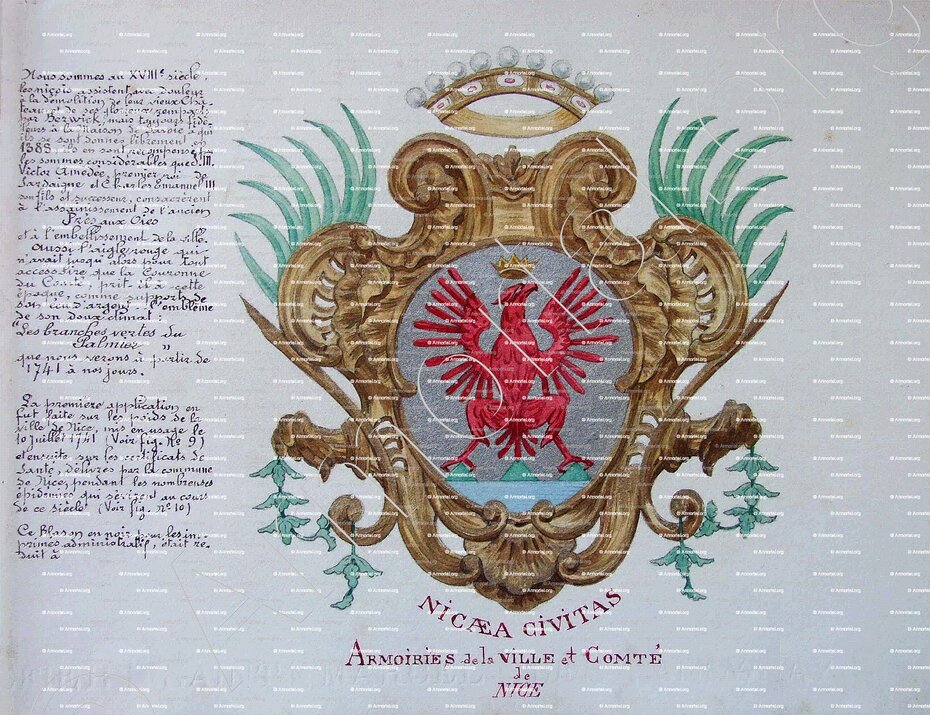 Nous sommes au XVIIIe siècle,
les niçois assistent avec douleur
à la démolition de leur vieux Châ-
teau et de ses glorieux remparts
par Berwick, mais toujours fidè-
leurs à la maison de Savoie à qui
ils se sont donnés librement en
1388 ils en sont récompensés par
les sommes considérables que S.M.
Victor Amédée, premier roi de
Sardaigne et Charles Emanuel III
son fils et successeur, consacrèrent
à l'assainissement de l'ancien
Prés aux Oies
et à l'embellissement de la ville.
Aussi l'aigle rouge qui
n'avait jusqu'alors pour tout
accessoire que la Couronne
du Comté, prit-il à cette
époque, comme supports de
son écu d'argent l'emblème
de son doux climat :
"Les branches vertes du
Palmier"
que nous verons à partir de
1741 à nos jours.
La première application en
fut faite sur les poids de la
ville de Nice, mis en usage le
10 Juillet 1741 (Voir fig. Ne 9)
et ensuite sur les certificats de
Santé, délivrés par la commune
de Nice, pendant les nombreuses
épidémies qui sévirent au cours
de ce siècle (Voir fig. no 10)
Ce Blason en noir pour les im-
primés administratifs était ré-
duit à
NICÆA CIVITAS
ARMOIRIES de la VILLE et COMTÉ
de
NICE
© Armorial.org